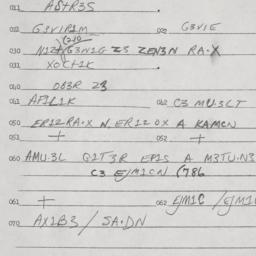 011 A5+R3S
012 G3VIR1M 022 G3VIE
030 N1Z+/G3N1G Z3 ZEN3N RA·X
031 XOC+1K
040 OB3R Z3
041 AF1L1K 042 C3 MU3LT
050 ER1ZRA·X N,ER1Z0X A KAMCN
051 + 052 +
060 AMU·3L G1T3R EP1S A M3TU·N3
C3 EJM1CN (786
061 + 062 EJM1C /EJM1
070 AX1B3/SA·DN